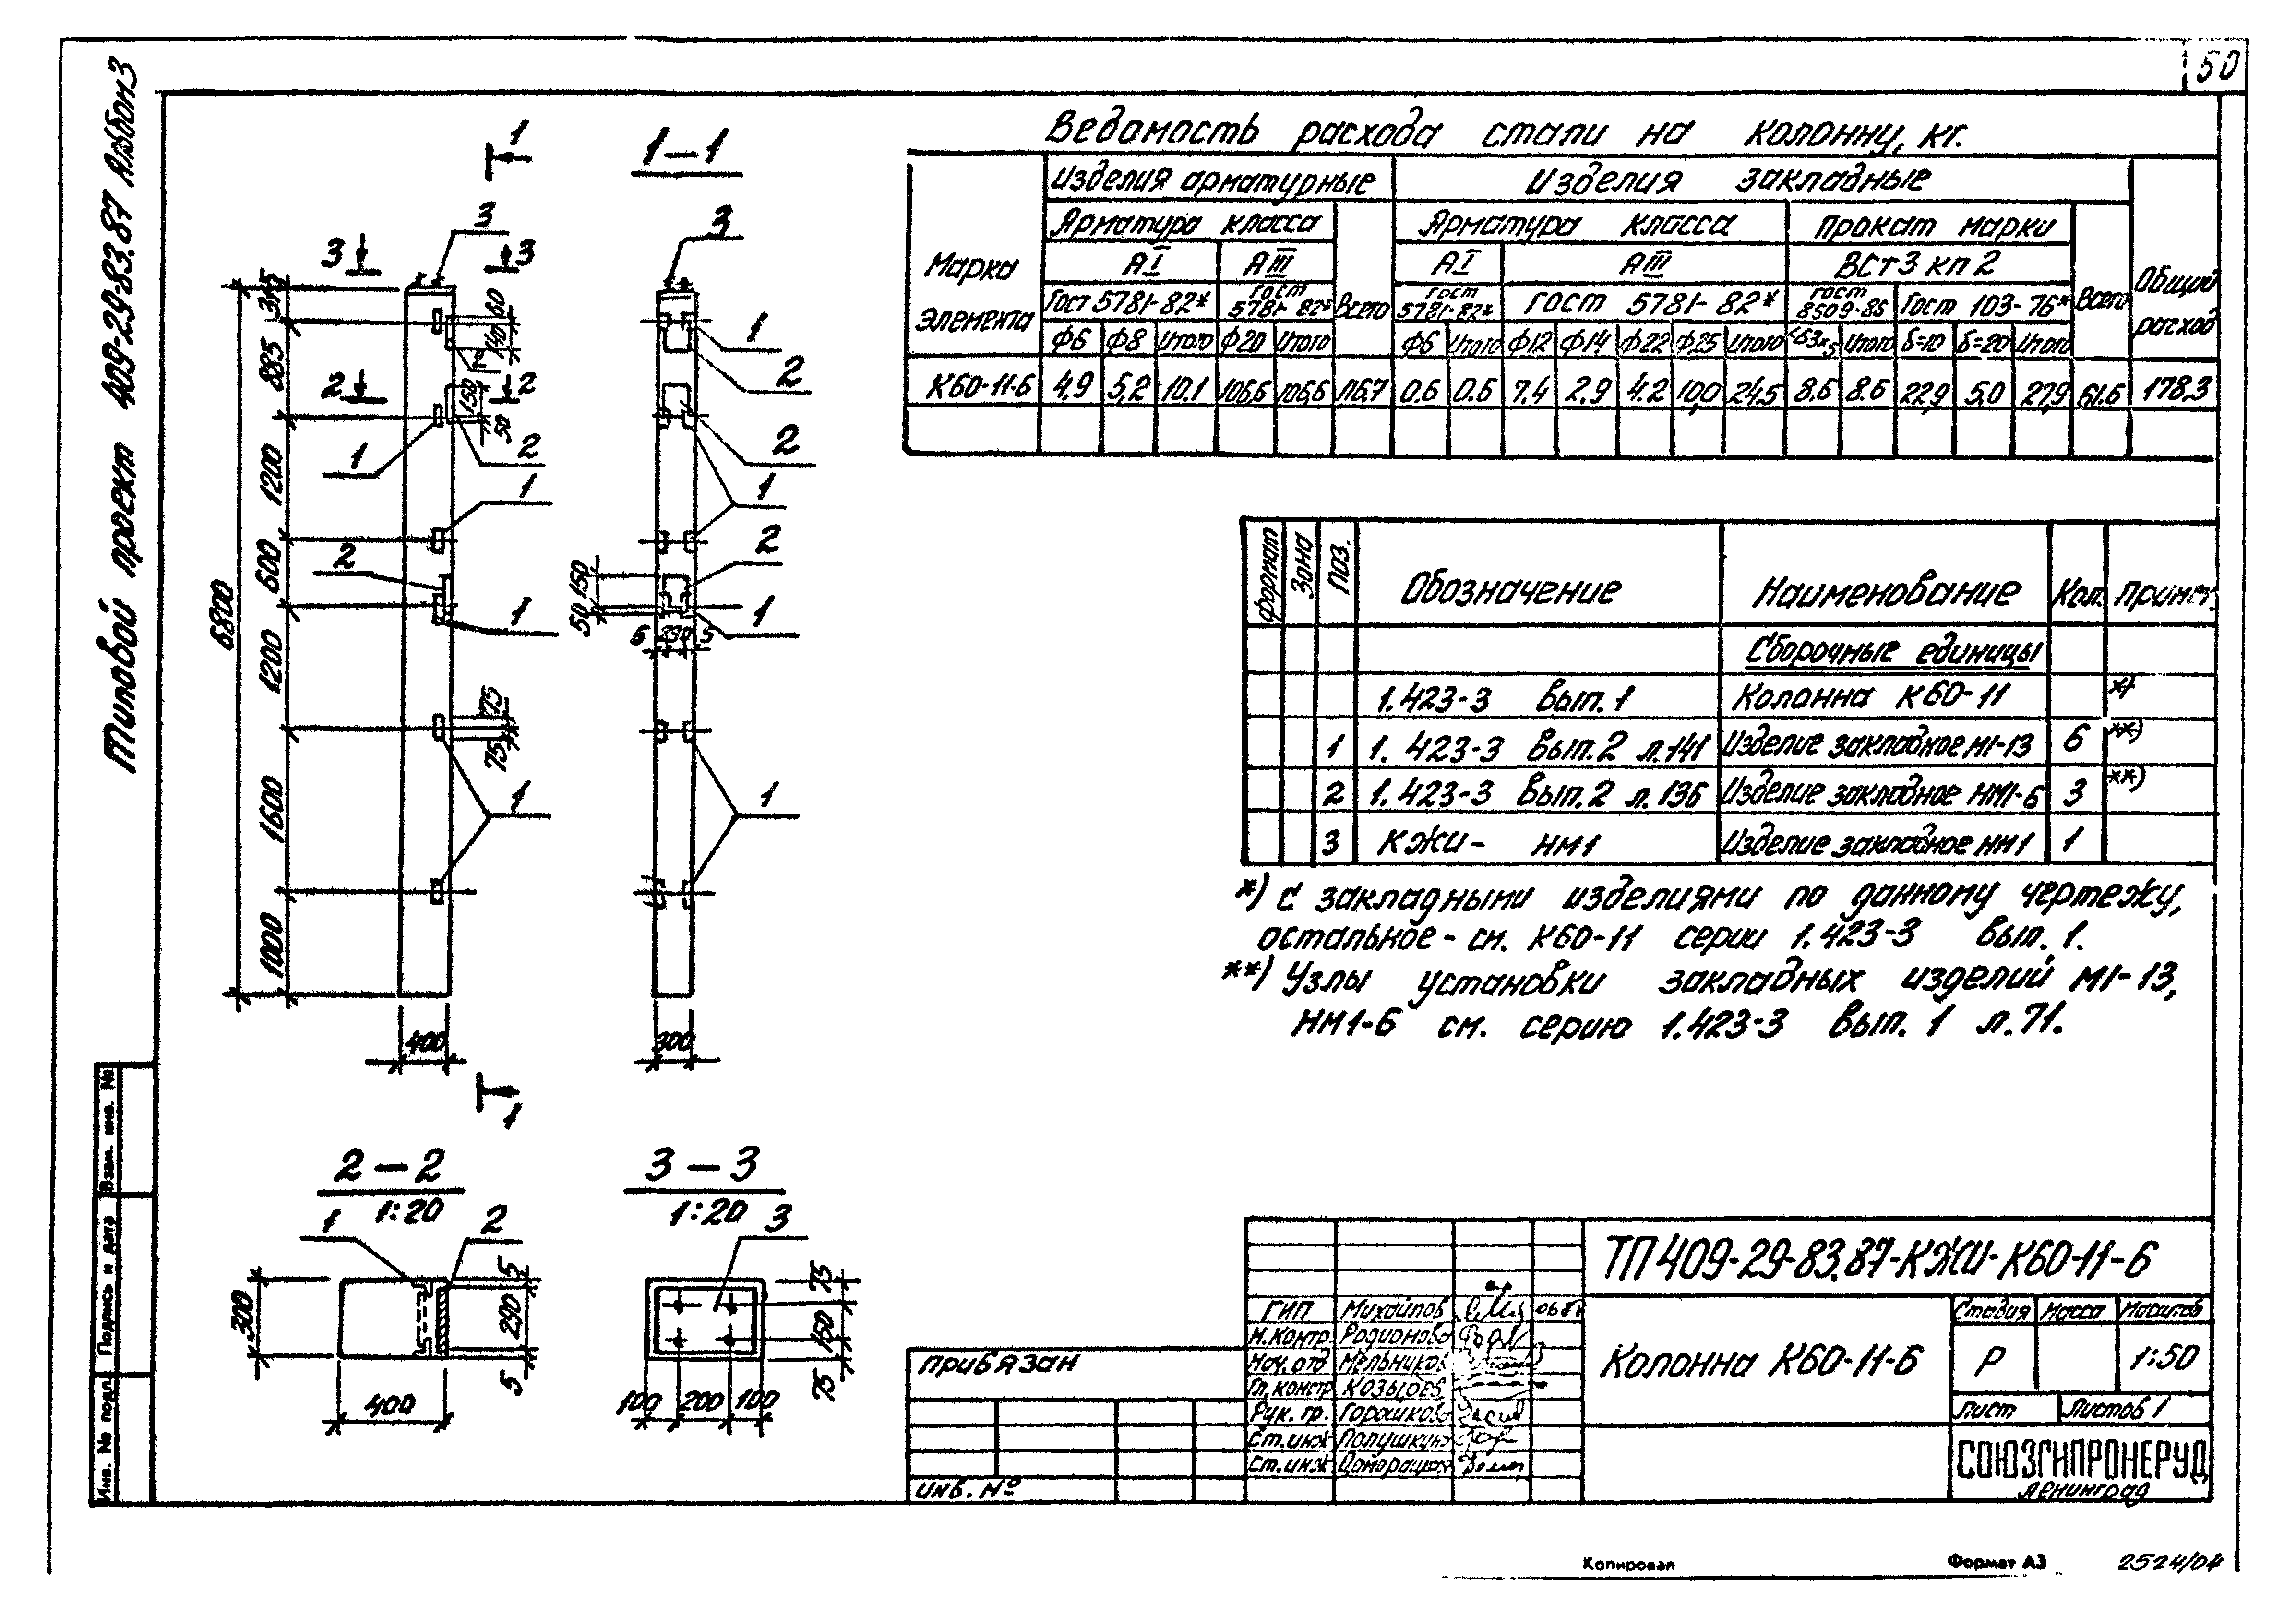 50
Типовой проект 409-29-83.87 Альбом 3
1
1-1
3
3
3 3
315
60
140
885
2 2
150
50
1
2
1
1200
2
600
1
6800
1200
75
75
1
1600
1000
400
1
1
2
2
1
2
150
50
1
5 290 5
1
300
2-2
1:20
1
2
300
5
290
5
400
3-3
1:20
3
75
150
75
100 200 100
Ведомость расхода стали на колонну, кг.
Марка элемента
Изделия арматурные
Изделия закладные
Общий расход
Арматура класса
Всего
Арматура класса
Прокат марки
Всего
АI
АIII
АI
АIII
ВСт3 кп 2
Гост 5781-82*
гост 5781-82*
гост 5781-82*
гост 5781-82*
гост 8509-86
Гост 103-76*
Ф6 Ф8 Итого Ф20 Итого Ф6 Итого Ф12 Ф14 Ф22 Ф25 Итого ∟63х5 Итого δ=10 δ=20 Итого
К60-11-6 4,9 5,2 10.1 106,6 106,6 116,7 0.6 0.6 7.4 2.9 4.2 10,0 24.5 8.6 8.6 22,9 5,0 27,9 61.6 178,3
Формат Зона Поз. Обозначение Наименование Кол. Примеч.
Сборочные единицы
1.423-3 Вып. 1 Колонна К60-11 *)
1 1.423-3 Вып. 2 л.141 Изделие закладное М1-13 6 **)
2 1.423-3 Вып. 2 л.136 Изделие закладное НМ1-6 3 **)
3 КЖИ- НМ1 Изделие закладное НМ1 1
*) С закладными изделиями по данному чертежу,
остальное - см. К60-11 серии 1.423-3 Вып. 1.
**) Узлы установки закладных изделий М1-13,
НМ1-6 см. серию 1.423-3 Вып. 1 л.71.
Взам. инв. №
Подпись и дата
Инв. № подл.
Привязан
Инв. №
ГИП Михайлов
Н.контр. Родионова
Нач.отд Мельников
Гл.констр. Козырев
Рук. гр. Горошков
Ст.инж Полушкин
Ст.инж
ТП 409-29-83.87-КЖИ-К60-11-6
Колонна К60-11-6
Стадия Масса Масштаб
Р 1:50
Лист Листов 1
СОЮЗГИПРОНЕРУД
Ленинград
Копировал
Формат А3
2524/04